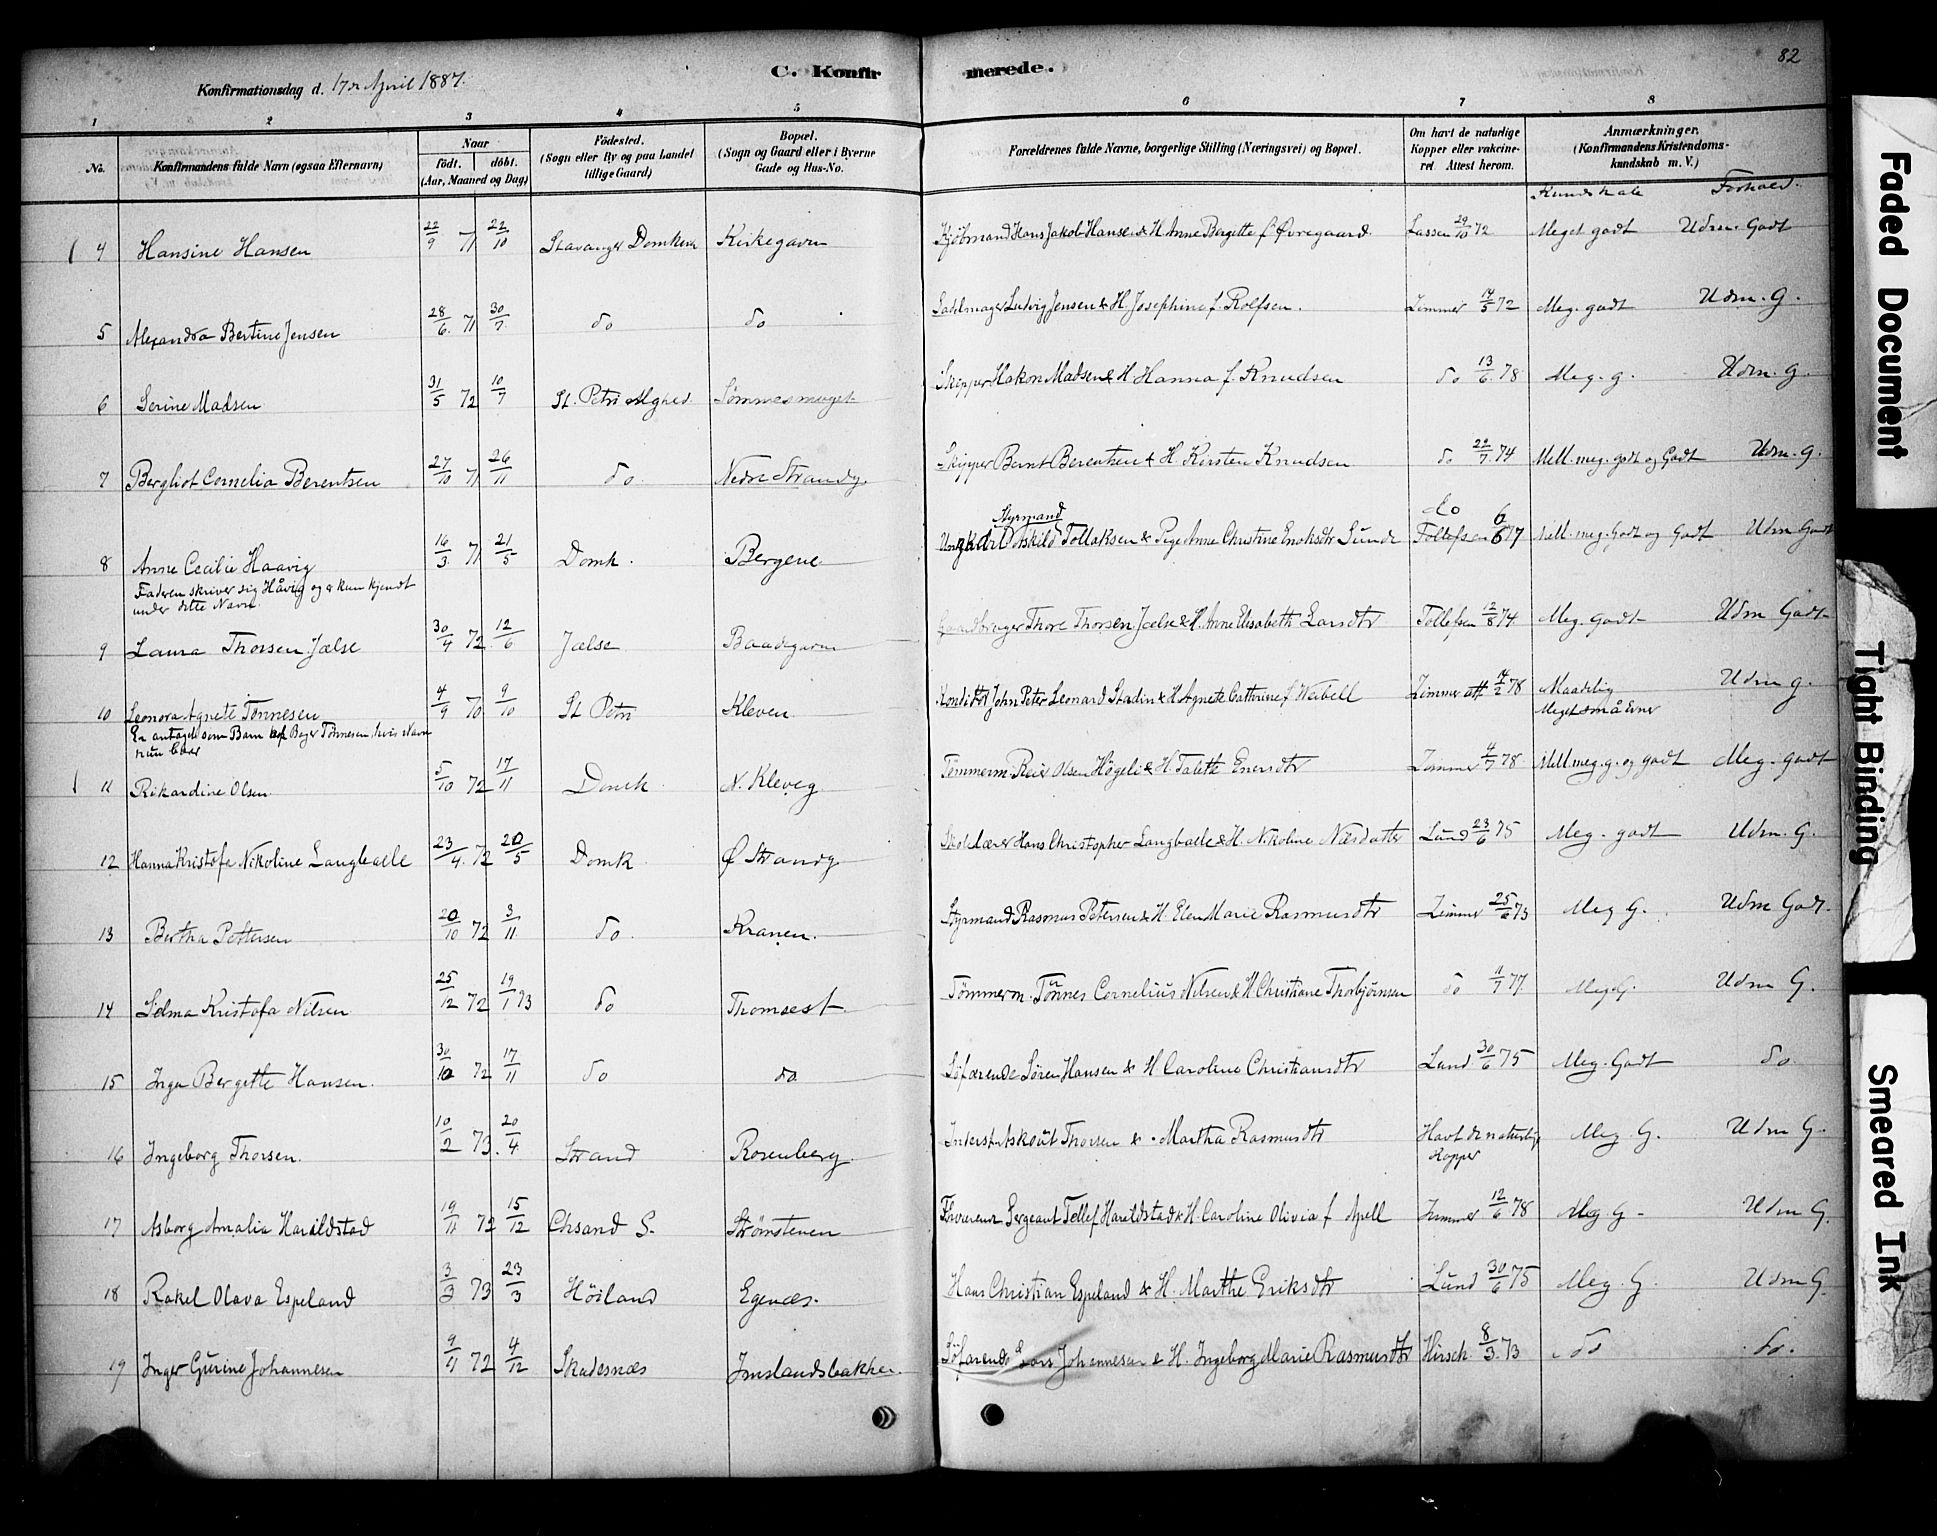 C. Konfirmerede.
82
Konfirmationsdag d. 17de April 1887.
1 2 3 4 5 6 7 8
No. Konfirmandens fulde Navn (ogsaa Efternavn) Naar födt. döbt. (Aar, Maaned og Dag) Födested. (Sogn eller By og paa Landet tillige Gaard) Bopæl. (Sogn og Gaard eller i Byerne Gade og Hus-No. Forældrenes fulde Navne, borgerlige Stilling (Næringsvei) og Bopæl. Om havt de naturlige Kopper eller vakcineret. Attest herom. Anmærkninger. (Konfirmandens Kristendomskundskab m. V.)
Kundskab Forhold.
4 Hansine Hansen 22/9 71 22/10 Stavanger Domkirke Kirkegaven Kjøbmand Hans Jakob Hansen & H. Anne Bergette f Øvregaard Lassen 29/10 72 Meget godt Udm. Godt
5 Alexandra Bertine Jensen 28/6 71 30/7 do do Sadelmager Ludvig Jensen & H. Josephine f. Rolfsen. Zimmer 14/5 72 Meg. godt Udm. G.
6 Serine Madsen 31/5 72 10/7 St. Petri Mghed. Sømmesmuget Skipper Hakon Madsen & H Hanna f. Knudsen do 13/6 78 Meg. g. Udm. g.
7 Bergliot Cornelia Berentsen 27/10 71 26/11 do Nedre Strandg. Skipper Bernt Berentsen & H Kirsten Knudsen do 22/7 74 Mell. meg. godt og Godt Udm. G.
8 Anne Cecilie Haavig 16/3 71 21/5 Domk. Bergene Styrmand Ungkarl Torskild Tollaksen & Pige Anne Christine Enoksdtr Lunde do Tollefsen 6/6 77 Mell. meg. Godt og Godt Udm Godt
Faderen skriver sig Håvig og er kun kjendt
under dette Navn.
9 Laura Thorsen Jælse 30/4 72 12/6 Jælse Baadegaven Gaardbruger Thore Thorsen Jælse & H. Anne Elisabeth Larsdtr Tollefsen 12/8 74 Meg. godt Udm Godt
10 Leonora Agnete Tønnesen 4/9 70 9/10 St Petri Kleven Konditor John Peter Leonard Stadin & H Agnete Cathrine f Weibell Zimmer att 14/2 78 Maadelig Udm g.
Meget små Evner
En antaget som Barn af Bager Tønnesen, hvis Navn
hun bærer
11 Rikardine Olsen 5/10 72 17/11 Domk N. Kleveg Tømmerm. Reier Olsen Høgeli & H. Talette Enersdtr Zimmer 4/7 78 Mell. meg. g. og godt Meg. godt
12 Hanna Kristofa Nikoline Langballe 23/4 72 20/5 Domk Ø Strandg Skolelærer Hans Christopher Langballe & H. Nikoline Nilsdatter Lund 23/6 75 Meg. godt Udm. G.
13 Bertha Pettersen 20/10 72 3/11 do Kranen. Styrmand Rasmus Petersen & H. Elen Marie Rasmusdtr Zimmer 25/6 73 Meg G. Udm Godt.
14 Selma Kristofa Nilsen 25/12 72 19/1 73 do Thomsest. Tömmerm. Tönnes Cornelius Nilsen & H Christiane Thorbjörnsen do 11/7 77 Meg G. Udm G.
15 Inga Bergitte Hansen. 30/10 72 17/11 do do Söfarende Sören Hansen & H. Caroline Christiansdtr Lund 30/6 75 Meg. Godt do
16 Ingeborg Thorsen. 10/2 73. 20/4 Strand Rosenberg. Inderst Askout Thorsen & Martha Rasmusdtr Havt de naturlige Kopper Meg. G. Udm G.
17 Asborg Amalia Haraldstad 19/11 72 15/12 Chsand S. Strömstenen Forværende Sergeant Tellef Haraldstad & H. Caroline Olivia f Apell Zimmer 12/6 78 Meg g - Udm G.
18 Rakel Olava Espeland 3/3 73 23/3 Höiland Egenæs. Hans Christian Espeland & H. Marthe Eriksdtr Lund 30/6 75 Meg. G. Udm G.
19 Inger Gurine Johannesen 9/11 72 4/12 Skudesnæs Imslandsbakken. Söfarende Lars Johannesen & H. Ingeborg Marie Rasmusdtr Hirsch. 8/3 73 do do.
Faded Document
Tight Binding
Smeared Ink